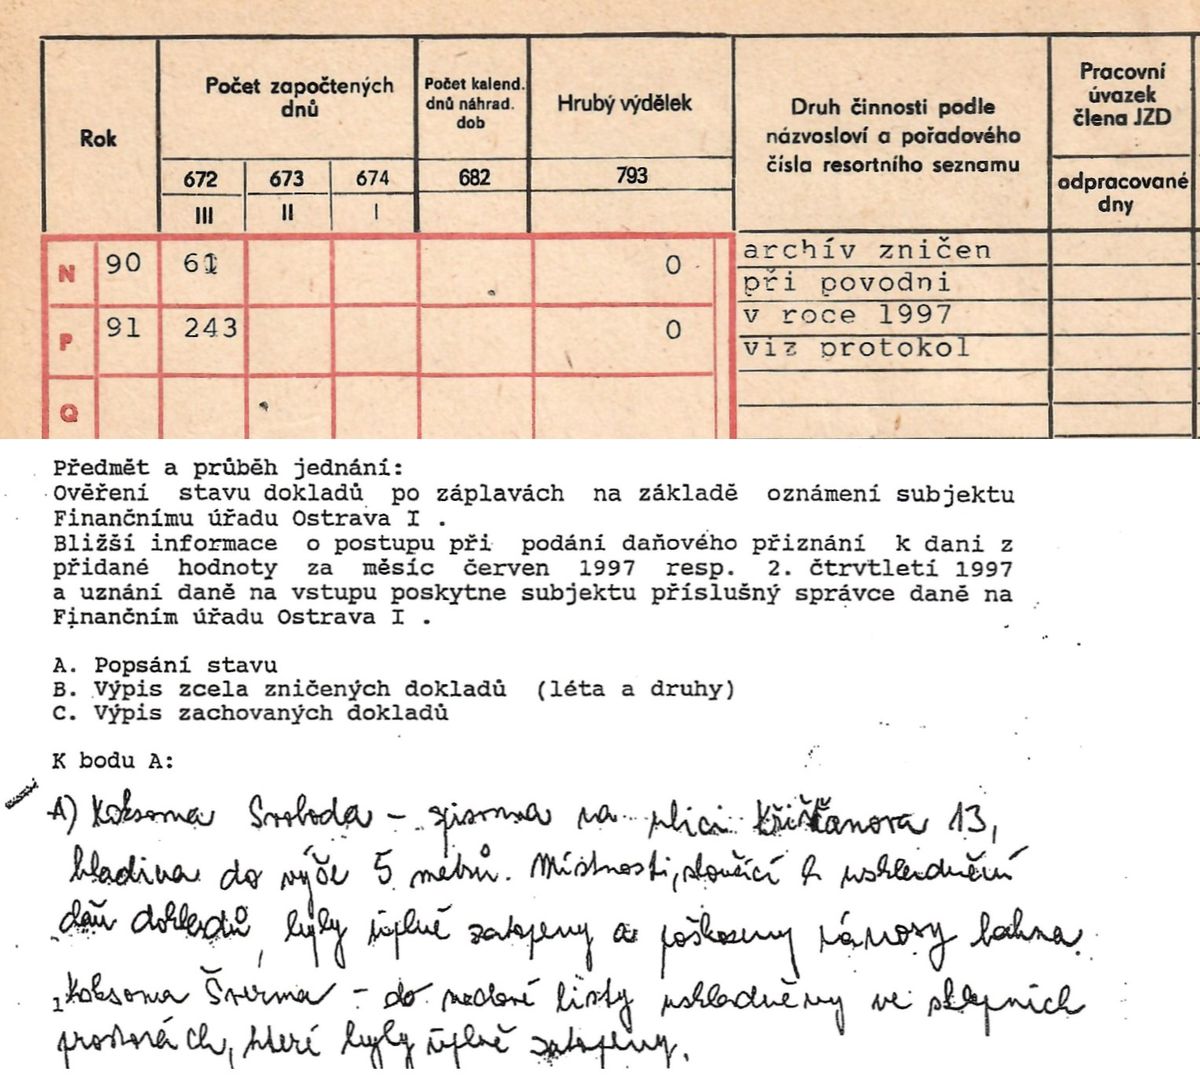 Rok
Počet započtených
dnů
Počet kalend.
dnů náhrad.
dob
Hrubý výdělek
Druh činnosti podle
názvosloví a pořadového
čísla resortního seznamu
Pracovní
úvazek
člena JZD
odpracované
dny
672 673 674 682 793
III II I
N 90 61 0
P 91 243 0
Q
archív zničen
při povodni
v roce 1997
viz protokol
Předmět a průběh jednání:
Ověření stavu dokladů po záplavách na základě oznámení subjektu
Finančnímu úřadu Ostrava I .
Bližší informace o postupu při podání daňového přiznání k dani z
přidané hodnoty za měsíc červen 1997 resp. 2. čtrvtletí 1997
a uznání daně na vstupu poskytne subjektu příslušný správce daně na
Finančním úřadu Ostrava I .
A. Popsání stavu
B. Výpis zcela zničených dokladů (léta a druhy)
C. Výpis zachovaných dokladů
K bodu A:
A) Koksovna Svoboda - spisovna na ulici Křišťanova 13,
hladina do výše 5 metrů. Místnosti, sloužící k uskladnění
daň dokladů, byly úplně zatopeny a poškozeny nánosy bahna.
Koksovna Šverma - do mzdové listy uskladněny ve sklepních
prostorách, které byly úplně zatopeny.